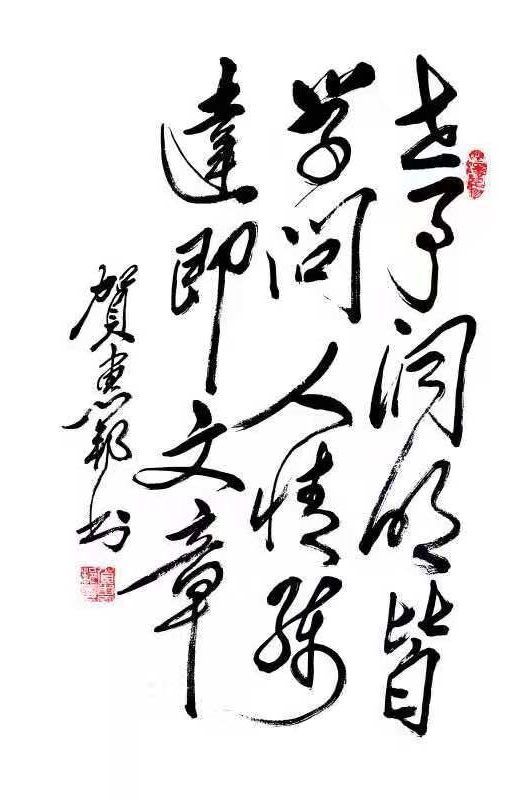 世事洞明皆
学问人情练
達即文章
賀惠邦书